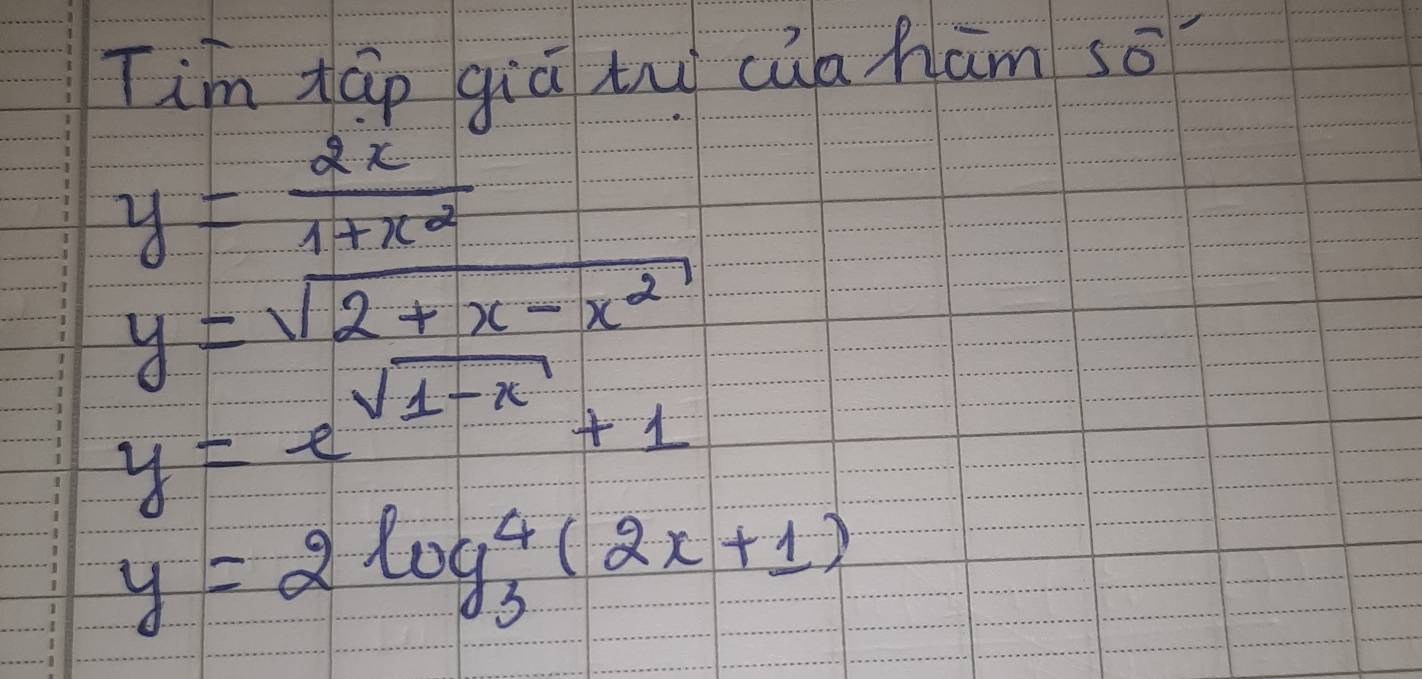 Tìm tập giá trị của hàm số
y = \frac{2x}{1+x^2}
y = \sqrt{2+x-x^2}
y = e^{\sqrt{1-x}} + 1
y = 2 log_3^4 (2x+1)